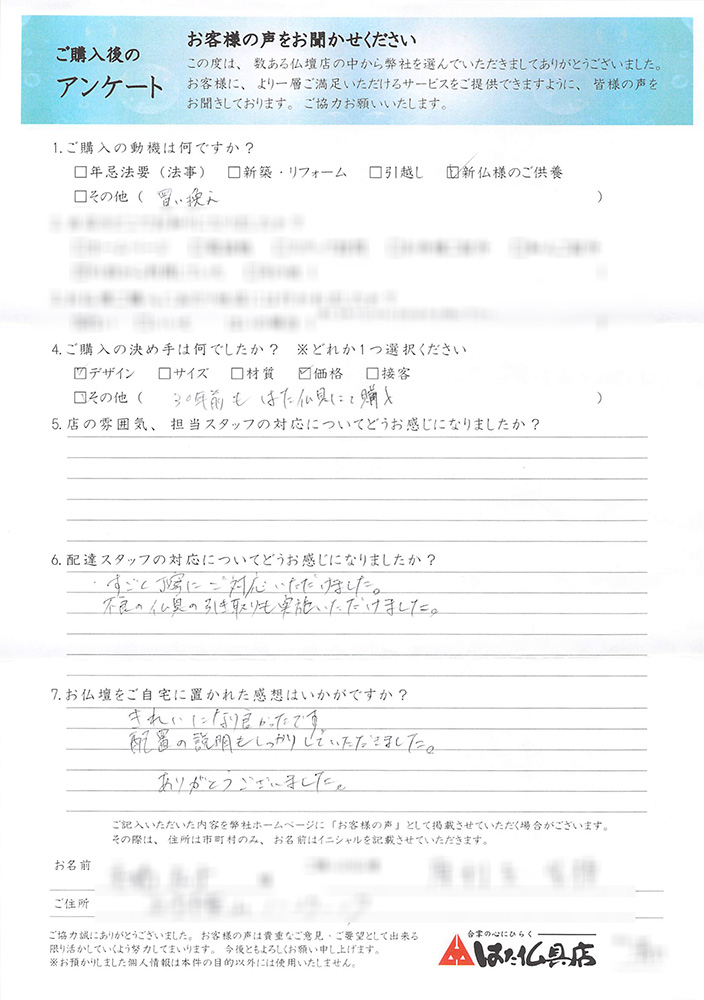 ご購入後の
アンケート
お客様の声をお聞かせください
この度は、数ある仏壇店の中から弊社を選んでいただきましてありがとうございました。
お客様に、より一層ご満足いただけるサービスをご提供できますように、皆様の声を
お聞きしております。ご協力お願いいたします。
1.ご購入の動機は何ですか?
□年忌法要(法事) □新築・リフォーム □引越し ☑新仏様のご供養
□その他( 買い換え )
4.ご購入の決め手は何でしたか? ※どれか1つ選択ください
☑デザイン □サイズ □材質 ☑価格 □接客
□その他( 30年前も はた仏具にて購入 )
5.店の雰囲気、担当スタッフの対応についてどうお感じになりましたか?
6.配達スタッフの対応についてどうお感じになりましたか?
・すごく丁寧にご対応いただけました。
不良の仏具の引き取りも実施いただけました。
7.お仏壇をご自宅に置かれた感想はいかがですか?
きれいになり良かったです
配置の説明もしっかりしていただきました。
ありがとうございました。
ご記入いただいた内容を弊社ホームページに「お客様の声」として掲載させていただく場合がございます。
その際は、住所は市町村のみ、お名前はイニシャルを記載させていただきます。
お名前
ご住所
ご協力誠にありがとうございました。お客様の声は貴重なご意見・ご要望として出来る
限り活かしていくよう努力してまいります。今後ともよろしくお願い申し上げます。
※お預かりしました個人情報は本件の目的以外には使用いたしません。
合掌の心にひらく
はた仏具店